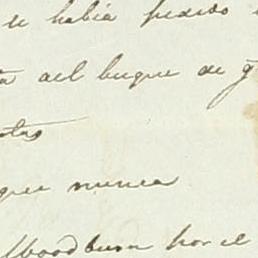 se había pedido
del buque de q
otas
que nunca
Woodburn por el